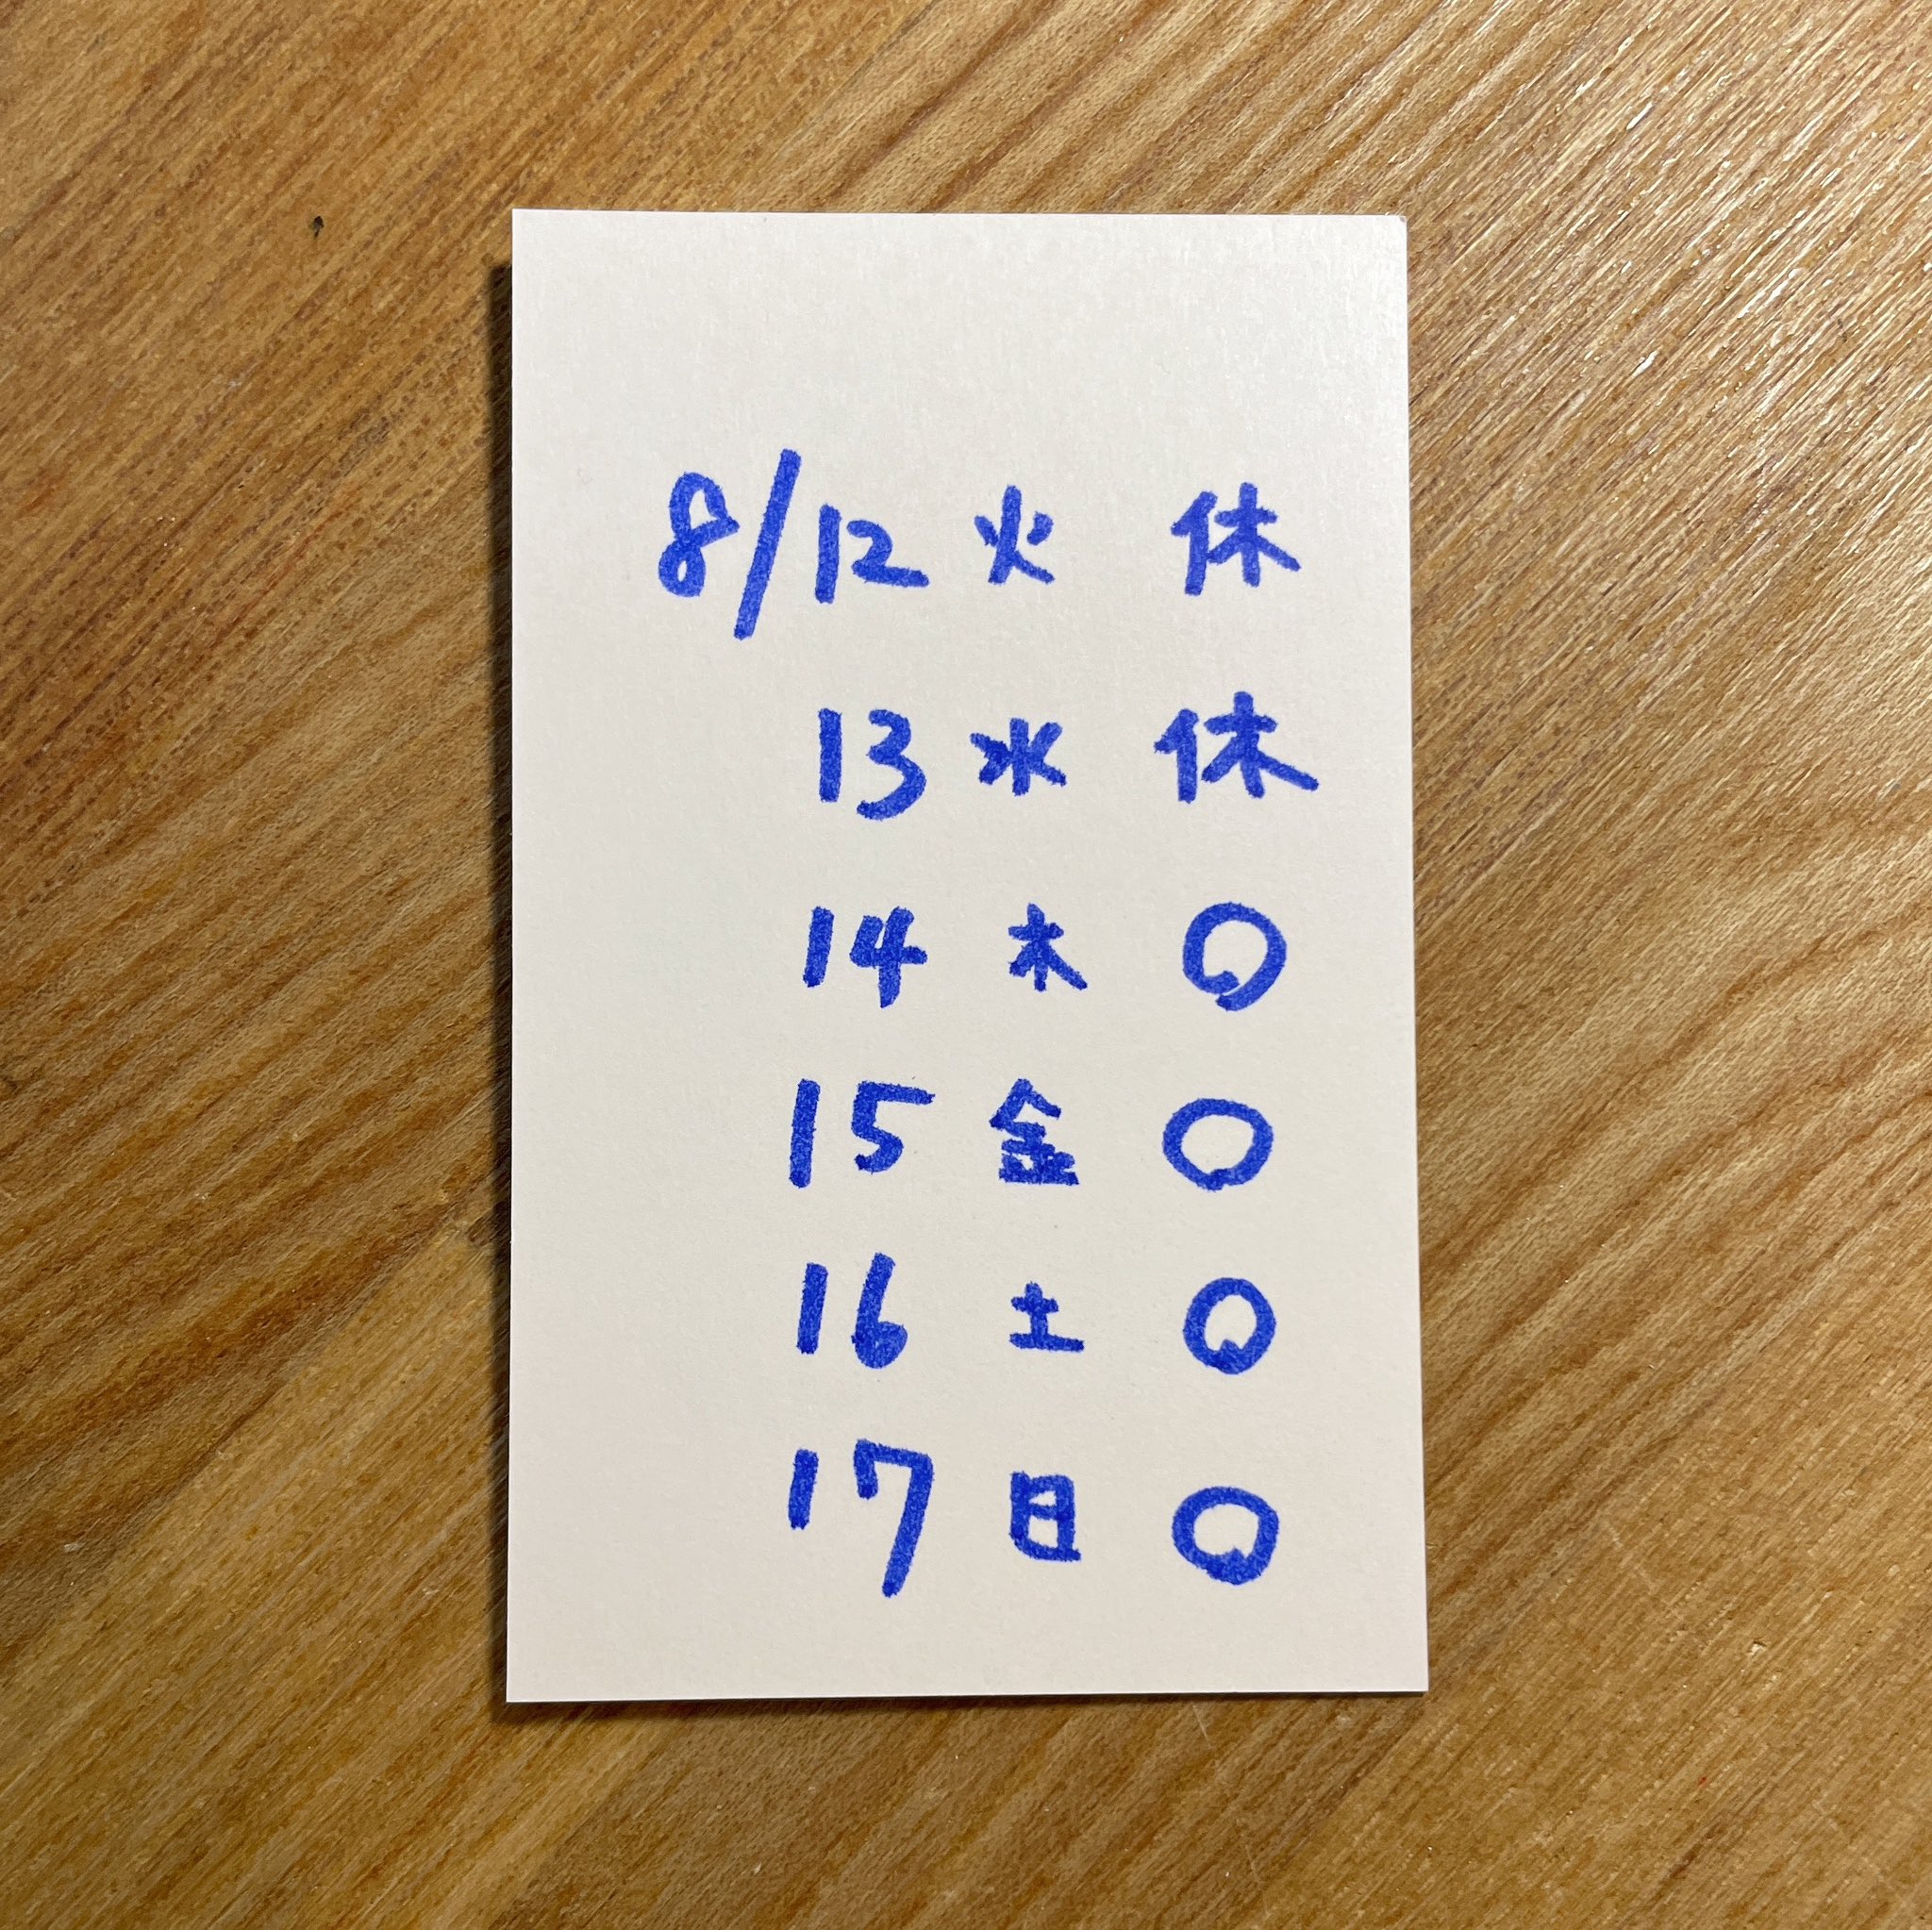 8/12 火 休
13 水 休
14 木 ○
15 金 ○
16 土 ○
17 日 ○